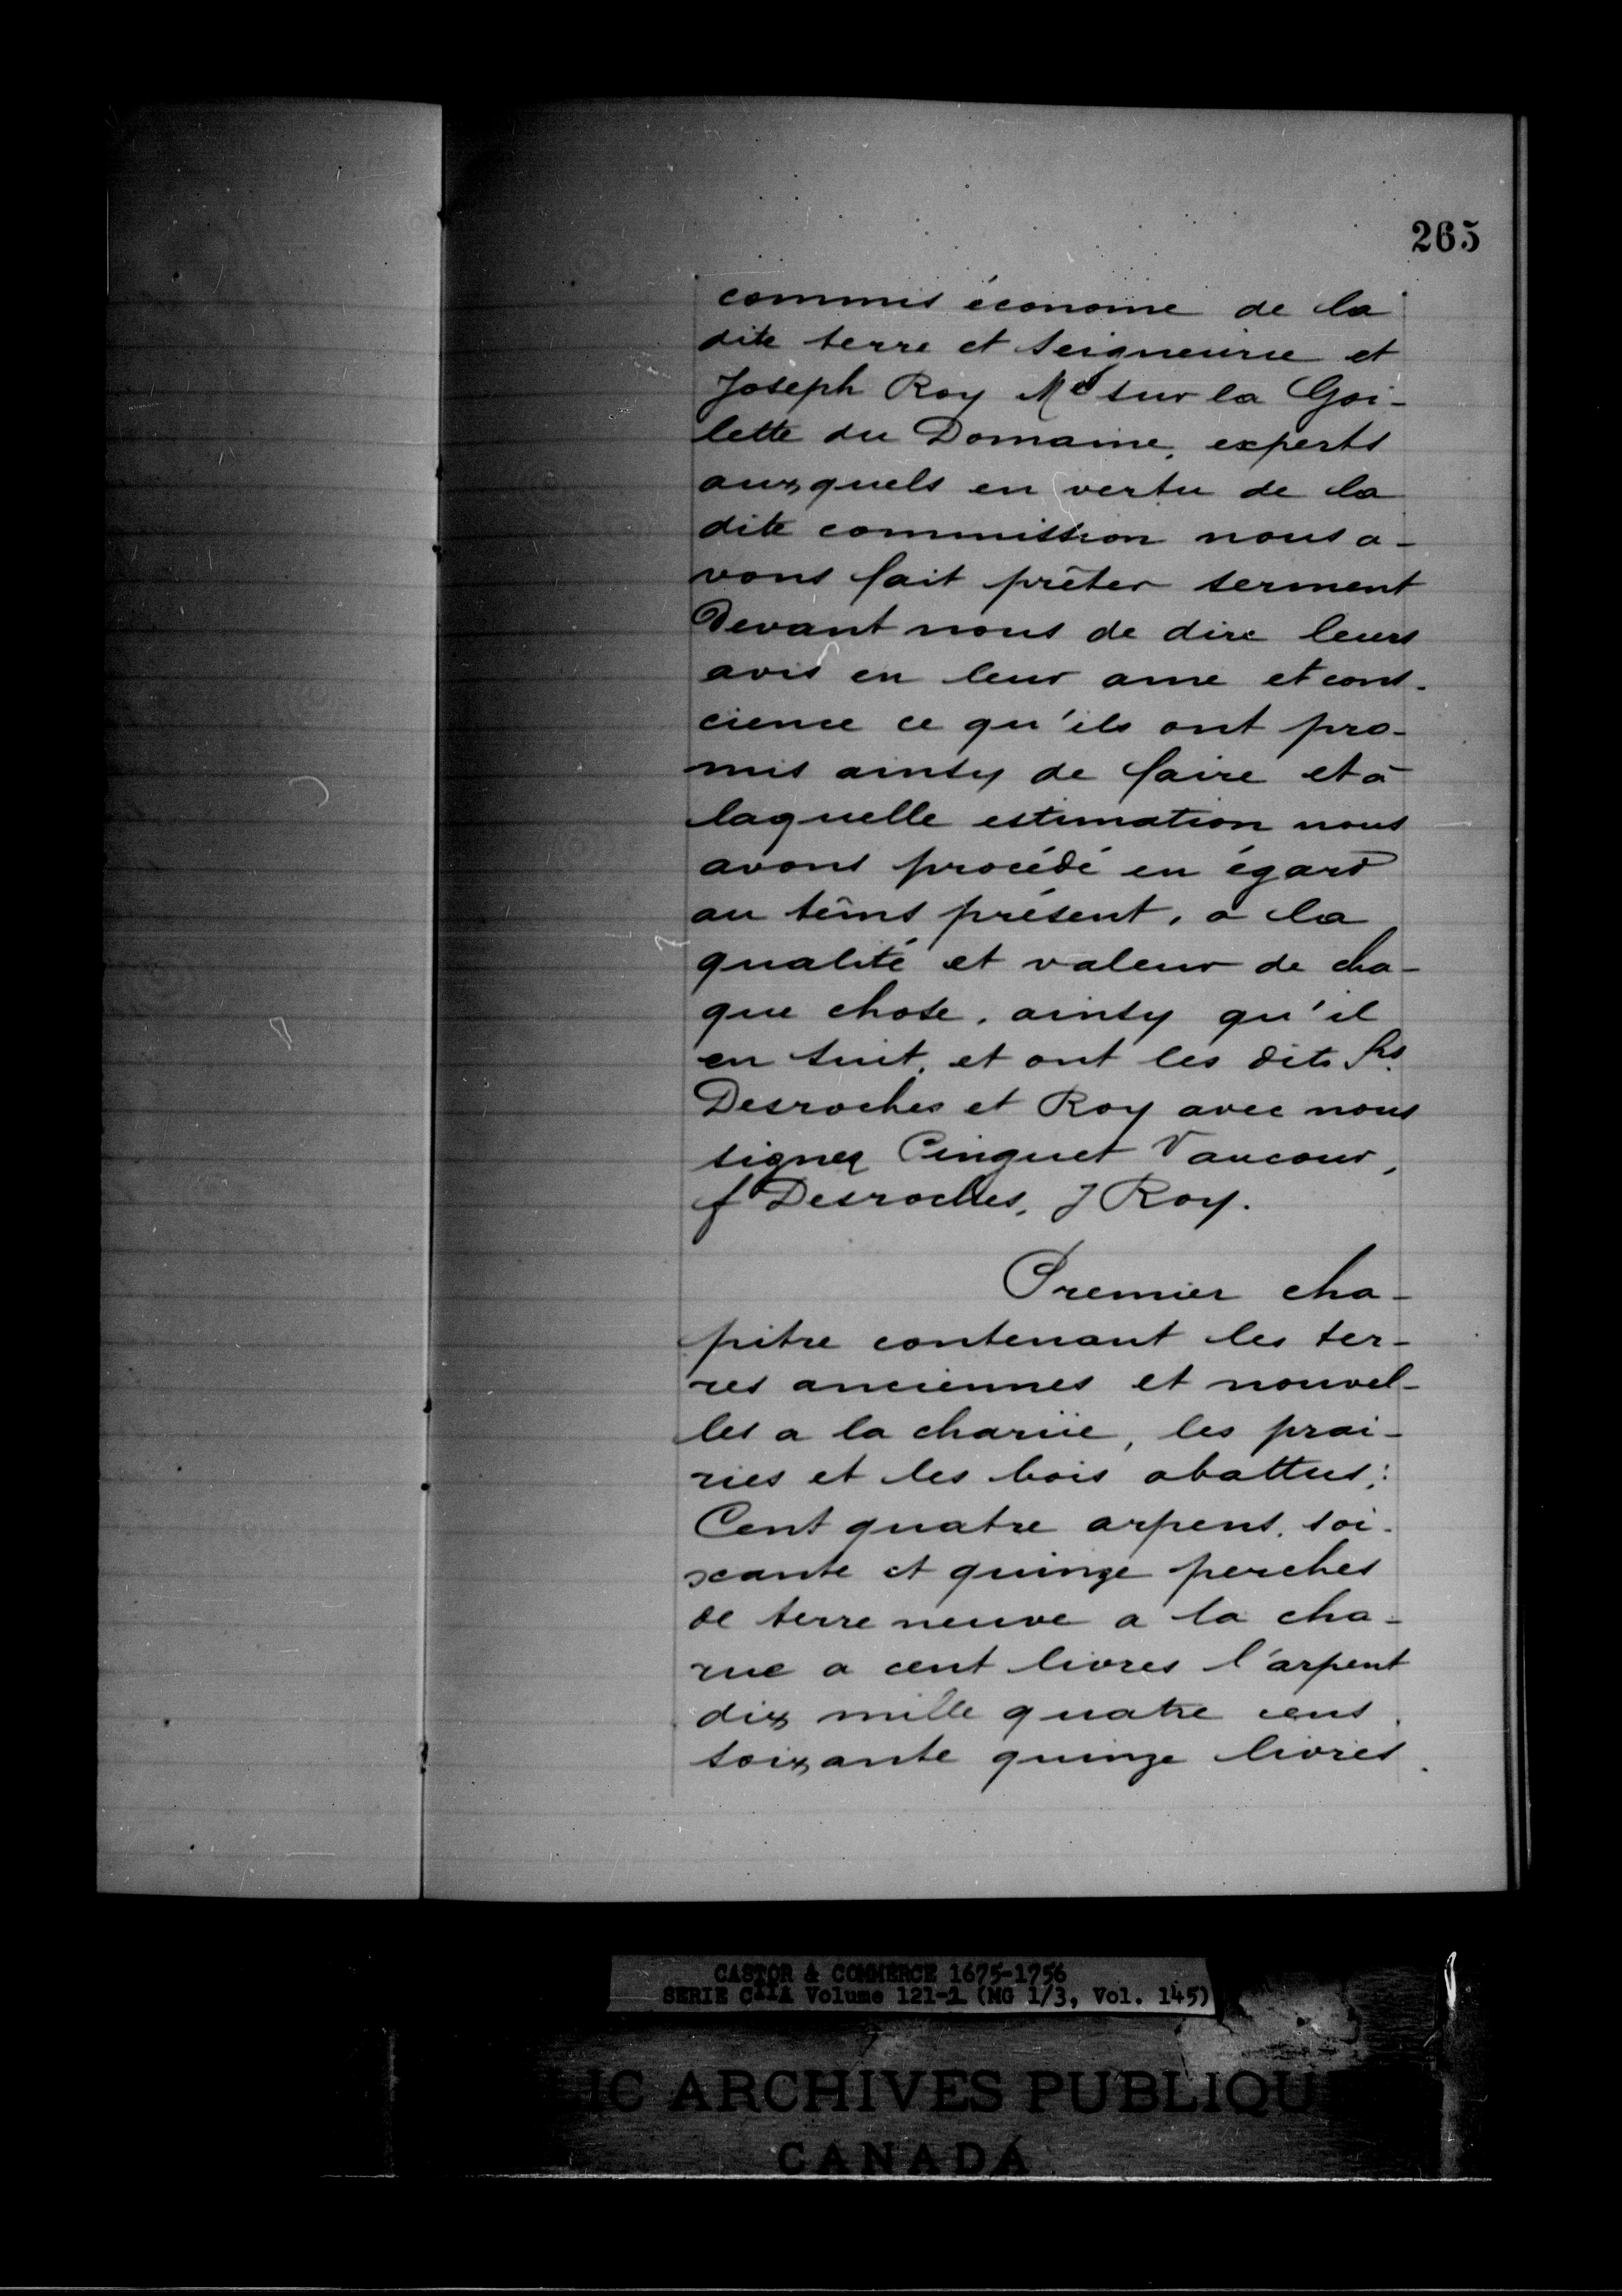 265
commis économe de la
dite terre et seigneurie et
Joseph Roy Me sur la Goi-
lette du Domaine, experts
auxquels en vertu de la
dite commission nous a-
vons fait prêter serment
Devant nous de dire leurs
avis en leur ame et cons-
cience ce qu'ils ont pro-
mis ainsy de faire et à
laquelle estimation nous
avons procédé en égard
au têms présent, a la
qualité et valeur de cha-
que chose, ainsy qu'il
en suit, et ont les dits Srs
Desroches et Roy avec nous
signez Cinquet Vaucour,
f Desroches, J Roy.
Premier cha-
pitre contenant les ter-
res anciennes et nouvel-
les a la charüe, les prai-
ries et les bois abattus;
Cent quatre arpens, soi-
xante et quinze perches
de terre neuve a la cha-
rue a cent livres l'arpent
dix mille quatre cens
soixante quinze livres.
CASTOR & COMMERCE 1675-1756
SERIE C11A Volume 121-1 (MG 1/3, Vol. 145)
IC ARCHIVES PUBLIQU
CANADA